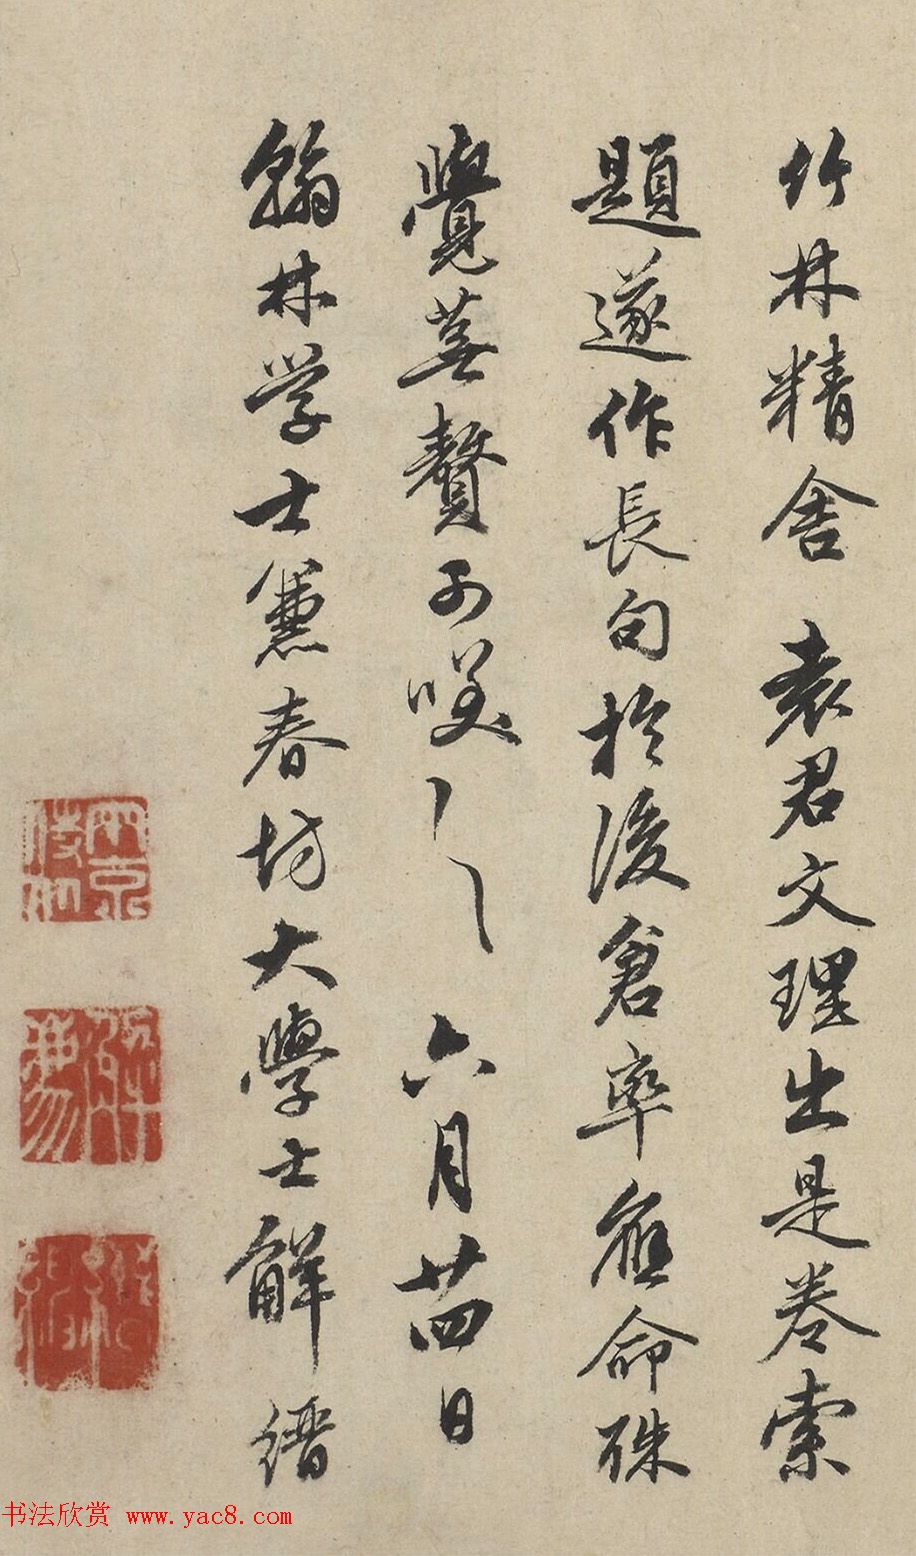 竹林精舍 袁君文理出是卷索
題遂作長句於後倉率應命殊
覺蕪贅可笑〻〻六月廿四日
翰林学士兼春坊大學士解縉
书法欣赏 www.yac8.com